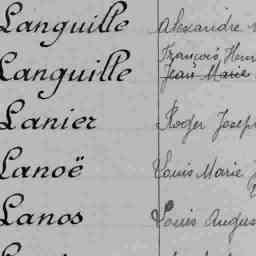 Languille Alexandre
Languille François, Henri
Jean Marie
Lanier Roger Joseph
Lanoë Louis Marie
Lanos Louis Augus